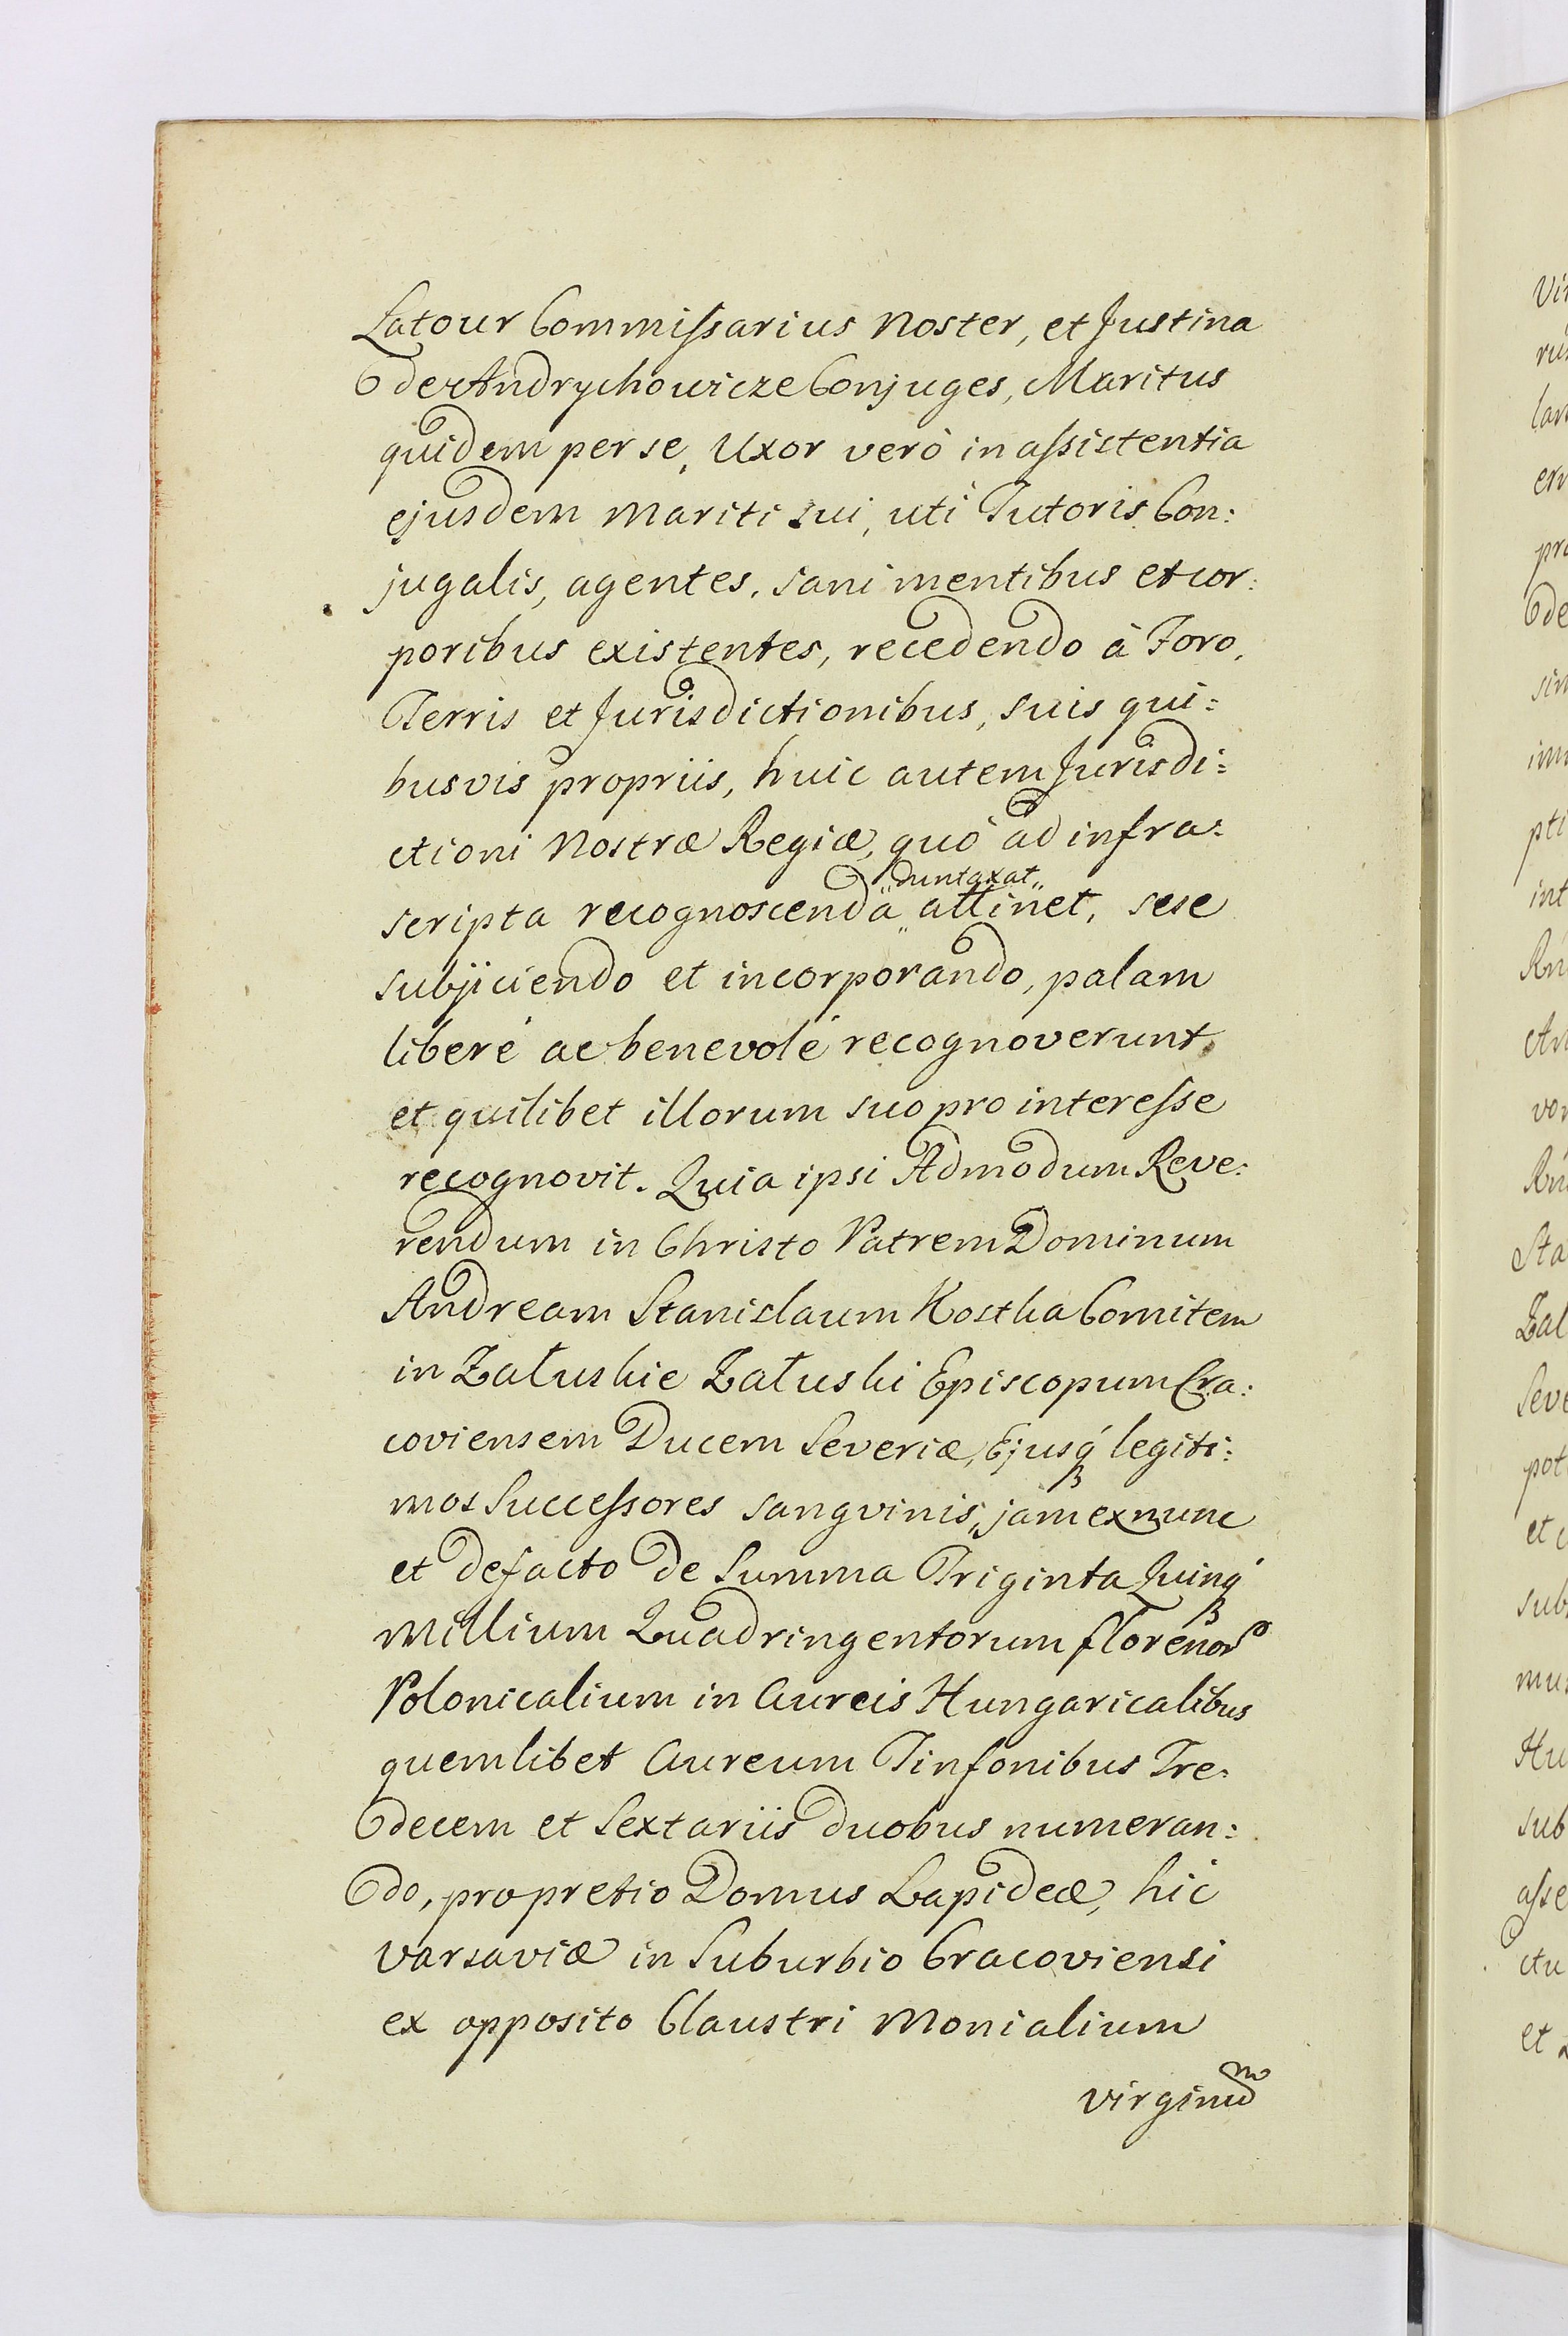 Latour Commissarius Noster, et Justina
de Andrychowicze Conjuges, Maritus
quidem per se, Uxor verò in assistentia
ejusdem mariti sui, uti Tutoris Con:
jugalis, agentes, sani mentibus et cor:
poribus existentes, recedendo à Foro,
Terris et Jurisdictionibus, suis qui:
busvis propriis, huic autem Jurisdi:
ctioni Nostræ Regiæ, quò ad infra:
duntaxat
scripta recognoscenda attinet, sese
subjiciendo et incorporando, palam
liberé ac benevolé recognoverunt,
et quilibet illorum suo pro interesse
recognovit. Quia ipsi Admodum Reve:
rendum in Christo Patrem Dominum
Andream Stanislaum Kostka Comitem
in Załuskie Załuski Episcopum Cra:
coviensem Ducem Severiæ, Ejusq́ legiti:
mos Successores sangvinis, jam ex nunc
et defacto de Summa Triginta Quinq́
Millium Quadringentorum florenor
Polonicalium in Aureis Hungaricalibus
quemlibet Aureum Tinfonibus Tre:
decem et Sextariis duobus numeran:
do, pro pretio Domus Lapideæ, hic
Varsaviæ in Suburbio Cracoviensi
ex opposito Claustri Monialium
virginum

Vir